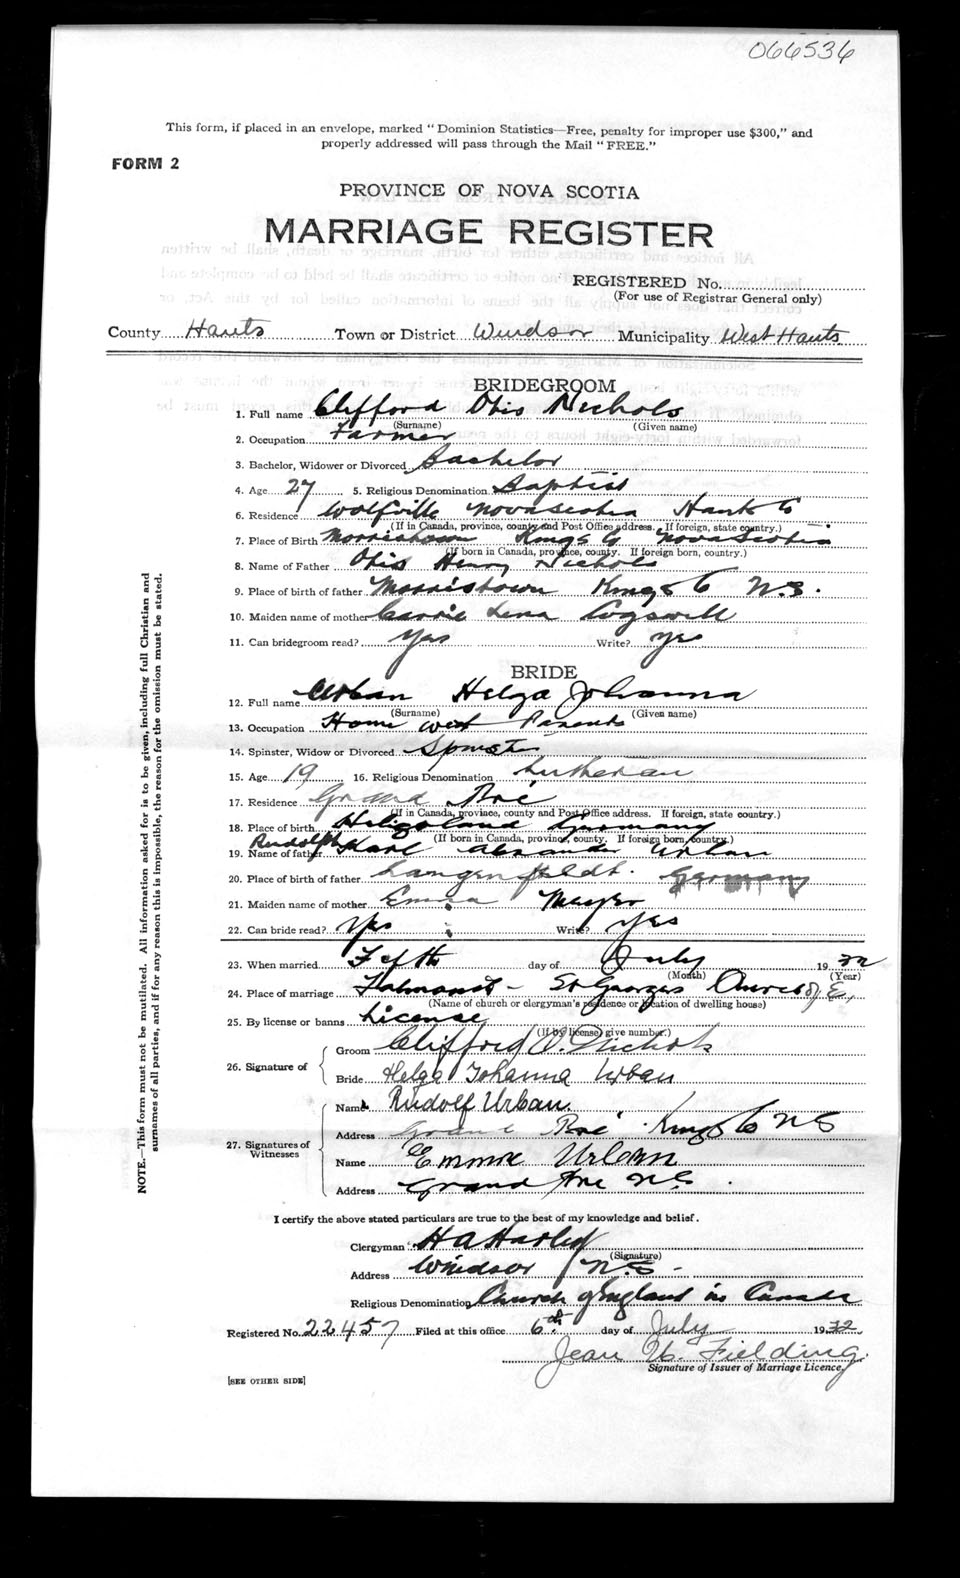 066536
This form, if placed in an envelope, marked "Dominion Statistics—Free, penalty for improper use $300," and
properly addressed will pass through the Mail "FREE."
FORM 2
PROVINCE OF NOVA SCOTIA
MARRIAGE REGISTER
REGISTERED No.
(For use of Registrar General only)
County Hants Town or District Windsor Municipality West Hants
BRIDEGROOM
1. Full name Clifford Otis Nichols
(Surname) (Given name)
2. Occupation Farmer
3. Bachelor, Widower or Divorced Bachelor
4. Age 27 5. Religious Denomination Baptist
6. Residence Wolfville Nova Scotia Hants Co
(If in Canada, province, county and Post Office address. If foreign, state country.)
7. Place of Birth Morristown Kings Co Nova Scotia
(If born in Canada, province, county. If foreign born, country.)
8. Name of Father Otis Henry Nichols
9. Place of birth of father Morristown Kings Co N.S.
10. Maiden name of mother Carrie Lena Cogswell
11. Can bridegroom read? Yes Write? Yes
BRIDE
12. Full name Urban Helga Johanna
(Surname) (Given name)
13. Occupation Home with Parents
14. Spinster, Widow or Divorced Spinster
15. Age 19 16. Religious Denomination Lutheran
17. Residence Grand Pré
(If in Canada, province, county and Post Office address. If foreign, state country.)
18. Place of birth Heligoland Germany
(If born in Canada, province, county. If foreign born, country.)
19. Name of father Rudolph Karl Alexander Urban
20. Place of birth of father Langenfeldt. Germany
21. Maiden name of mother Emma Meyer
22. Can bride read? Yes Write? Yes
23. When married Fifth day of July 1932
(Month) (Year)
24. Place of marriage Falmouth - St Georges Church of E.
(Name of church or clergyman's residence or location of dwelling house)
25. By license or banns License
(If by license, give number.)
26. Signature of
Groom Clifford O. Nichols
Bride Helga Johanna Urban
27. Signatures of Witnesses
Name Rudolf Urban.
Address Grand Pré Kings Co NS
Name Emma Urban
Address Grand Pre N.S.
I certify the above stated particulars are true to the best of my knowledge and belief.
Clergyman H A Harley
(Signature)
Address Windsor N.S.
Religious Denomination Church of England in Canada
Registered No. 22457 Filed at this office 6th day of July 1932
Jean W. Fielding.
Signature of Issuer of Marriage Licence.
[SEE OTHER SIDE]
NOTE.—This form must not be mutilated. All information asked for is to be given, including full Christian and
surnames of all parties, and if for any reason this is impossible, the reason for the omission must be stated.